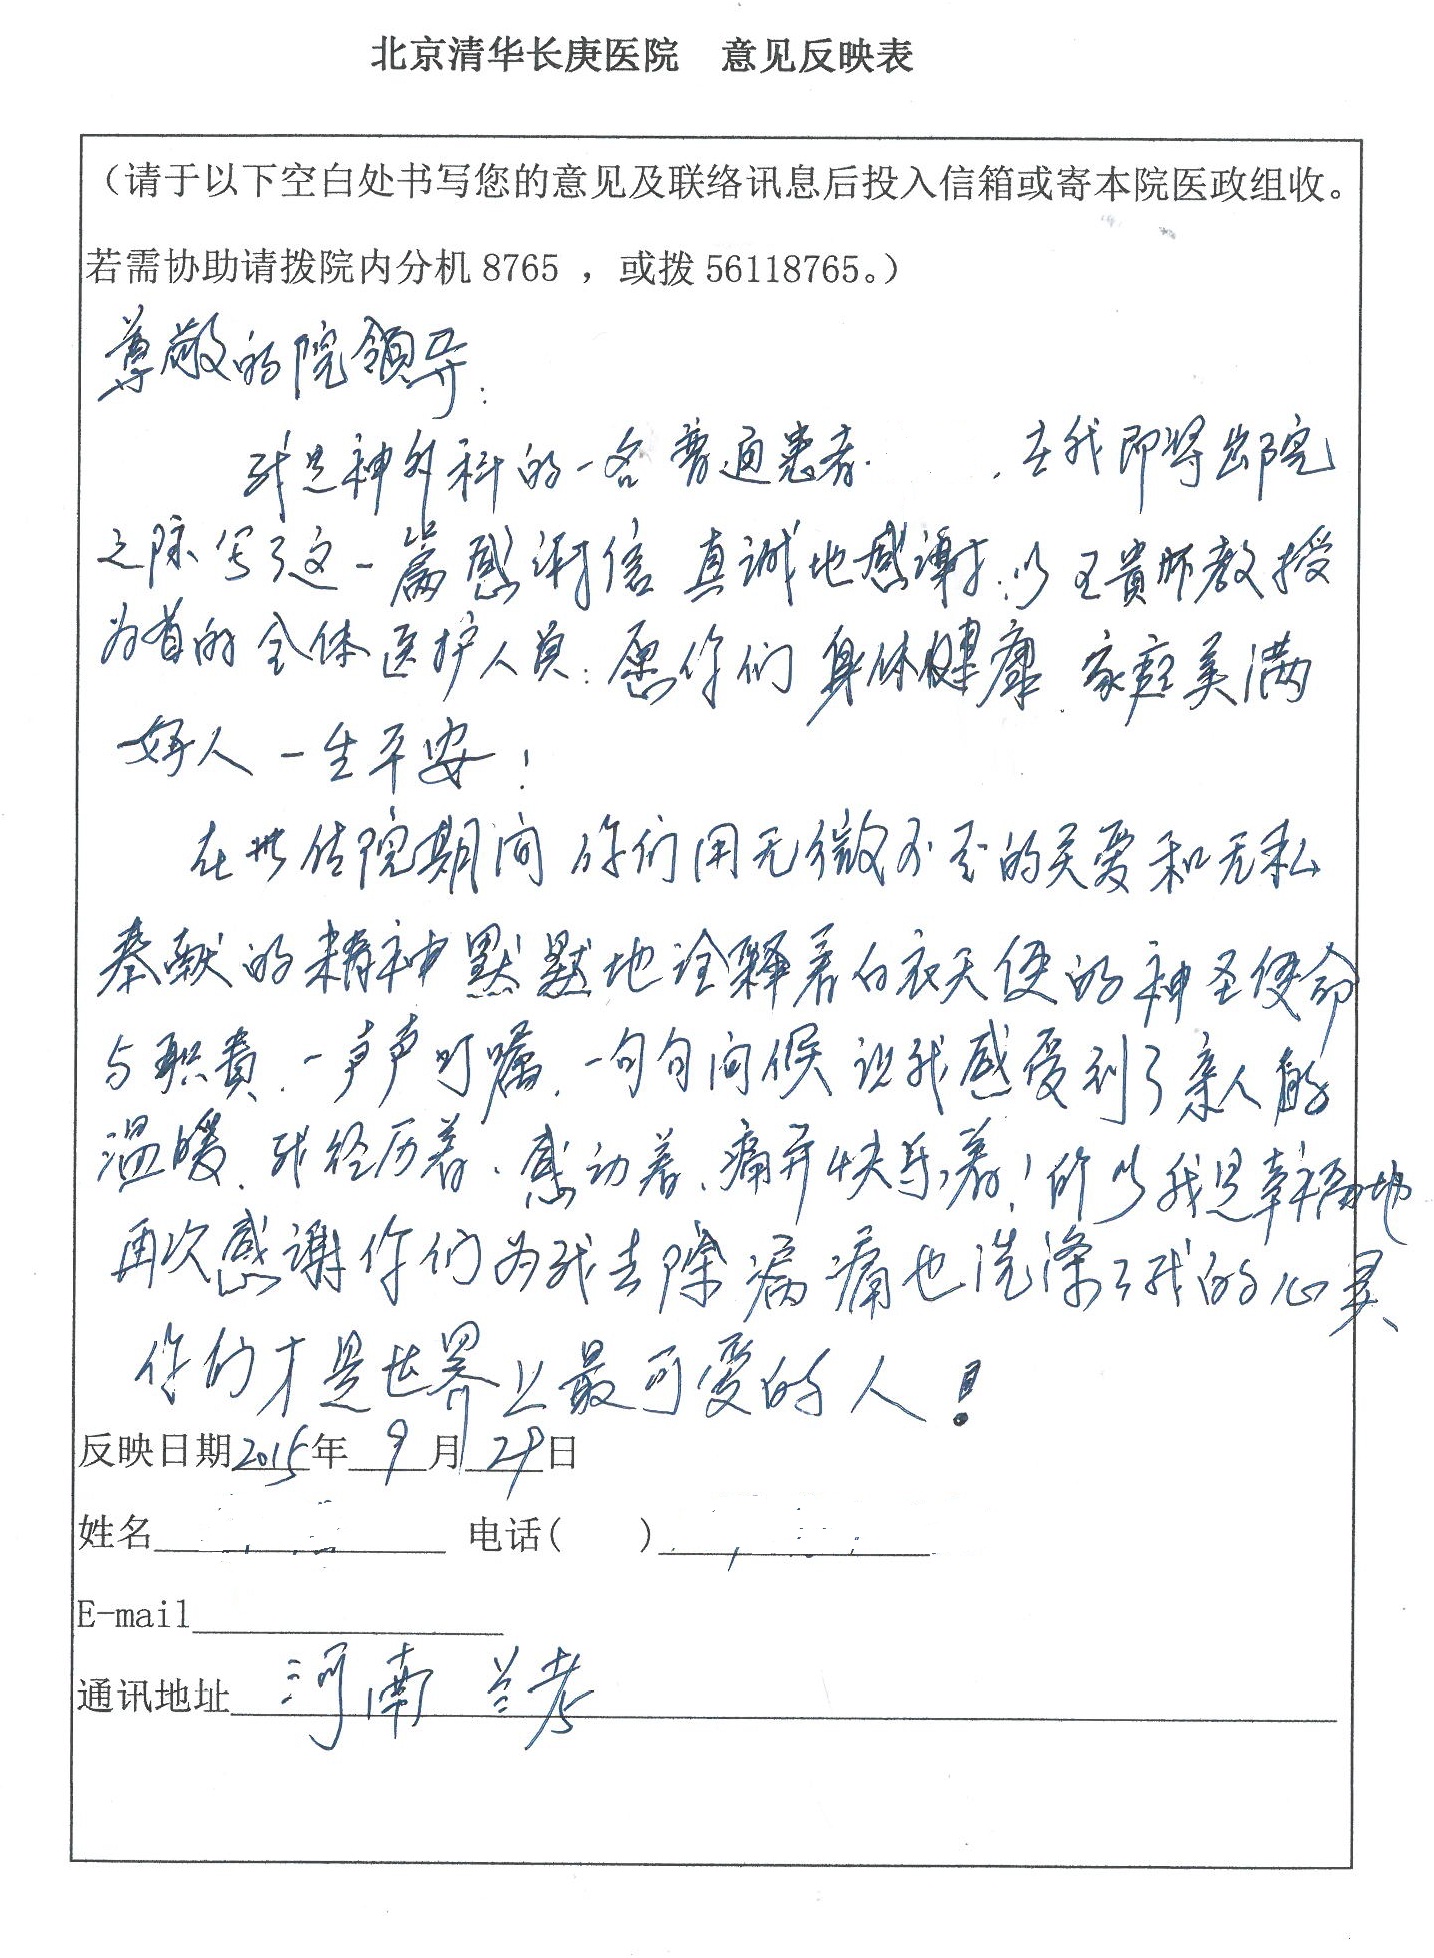 北京清华长庚医院 意见反映表
（请于以下空白处书写您的意见及联络讯息后投入信箱或寄本院医政组收。
若需协助请拨院内分机8765 ，或拨56118765。）
尊敬的院领导：
我是神外科的一名普通患者. ，在我即将出院
之际写了这一篇感谢信 真诚地感谢：以王贵怀教授
为首的全体医护人员：愿你们身体健康、家庭美满
好人一生平安！
在此住院期间 你们用无微不至的关爱和无私
奉献的精神默默地诠释着白衣天使的神圣使命
与职责、一声声叮嘱、一句句问候 让我感受到了亲人的
温暖、我经历着、感动着、痛并快乐着！所以我是幸福地
再次感谢你们为我去除病痛也洗涤了我的心灵
你们才是世界上最可爱的人！
反映日期2015年9月29日
姓名 电话( )
E-mail
通讯地址 河南 兰考